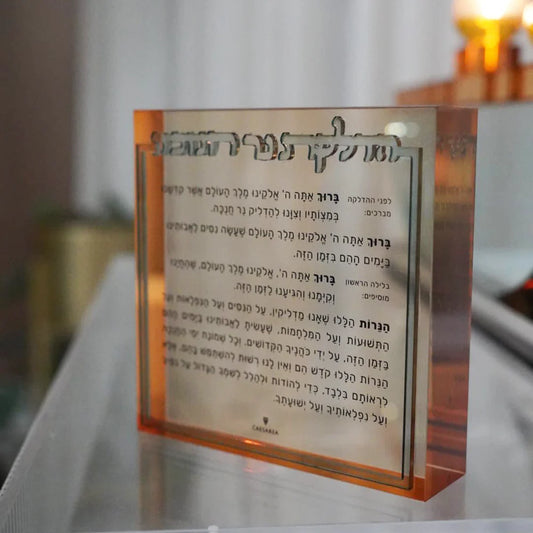 הדלקת נר חנוכה
לפני ההדלקה
מברכים:
בָּרוּךְ אַתָּה ה' אֱלֹקֵינוּ מֶלֶךְ הָעוֹלָם אֲשֶׁר קִדְּשָׁנוּ
בְּמִצְוֹתָיו וְצִוָּנוּ לְהַדְלִיק נֵר חֲנֻכָּה.
בָּרוּךְ אַתָּה ה' אֱלֹקֵינוּ מֶלֶךְ הָעוֹלָם שֶׁעָשָׂה נִסִּים לַאֲבוֹתֵינוּ
בַּיָּמִים הָהֵם בַּזְּמַן הַזֶּה.
בלילה הראשון
מוסיפים:
בָּרוּךְ אַתָּה ה'. אֱלֹקֵינוּ מֶלֶךְ הָעוֹלָם, שֶׁהֶחֱיָנוּ
וְקִיְּמָנוּ וְהִגִּיעָנוּ לַזְּמַן הַזֶּה.
הַנֵּרוֹת הַלָּלוּ שֶׁאָנוּ מַדְלִיקִין, עַל הַנִּסִּים וְעַל הַנִּפְלָאוֹת וְעַל
הַתְּשׁוּעוֹת וְעַל הַמִּלְחָמוֹת, שֶׁעָשִׂיתָ לַאֲבוֹתֵינוּ בַּיָּמִים הָהֵם
בַּזְּמַן הַזֶּה. עַל יְדֵי כֹּהֲנֶיךָ הַקְּדוֹשִׁים. וְכָל שְׁמוֹנַת יְמֵי הַחֲנֻכָּה
הַנֵּרוֹת הַלָּלוּ קֹדֶשׁ הֵם וְאֵין לָנוּ רְשׁוּת לְהִשְׁתַּמֵּשׁ בָּהֶם, אֶלָּא
לִרְאוֹתָם בִּלְבַד. כְּדֵי לְהוֹדוֹת וּלְהַלֵּל לְשִׁמְךָ הַגָּדוֹל עַל נִסֶּיךָ
וְעַל נִפְלְאוֹתֶיךָ וְעַל יְשׁוּעָתֶךָ.
CAESAREA